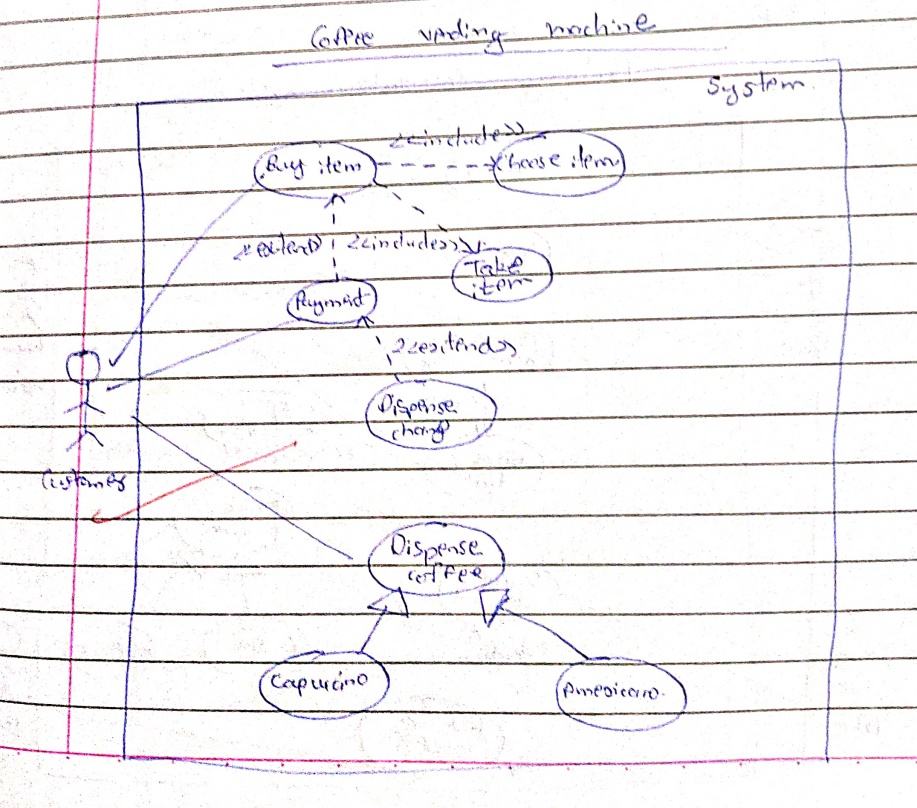 Coffee vending machine
System
<<include>>
Buy item
Choose item
<<extend>>
<<include>>
Take
item
Payment
<<extend>>
Dispense
change
Customer
Dispense
coffee
Capuccino
Americano.